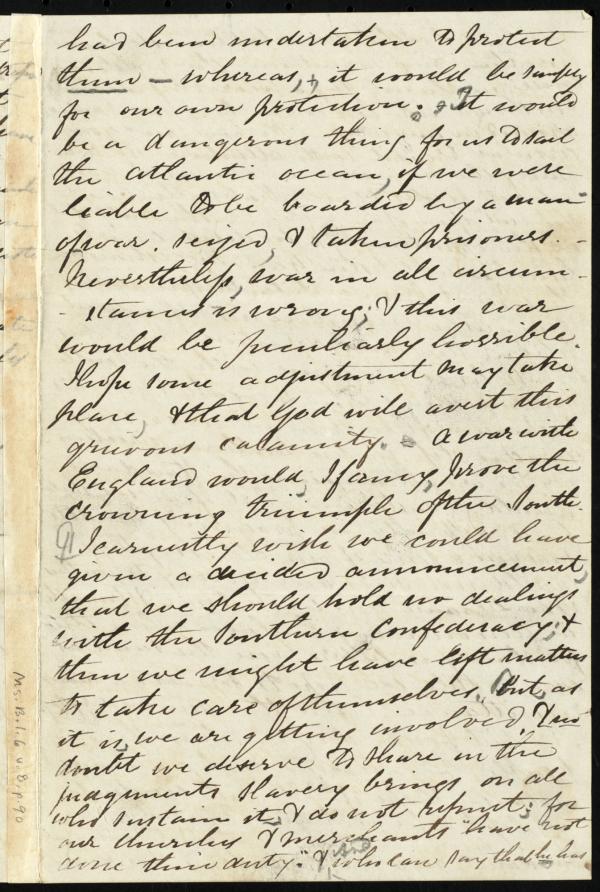 had been undertaken to protect
them — whereas, it would be simply
for our own protection. It would
be a dangerous thing for us to sail
the atlantic ocean, if we were
liable to be boarded by a man
of war, seized, & taken prisoners. -
Nevertheless, war in all circum -
- stances is wrong; & this war
would be peculiarly horrible.
I hope some adjustment may take
place, & that God will avert this
grievous calamity. - A war with
England would, I fancy, prove the
crowning triumph of the South.
¶ I earnestly wish we could have
given a decided announcement,
that we should hold no dealings
with the Southern Confederacy; &
then we might have left matters
to take care of themselves, but, as
it is, we are getting involved, & no
doubt we deserve to share in the
judgments slavery brings on all
who sustain it, & do not repent; for
our churches & merchants "have not
done their duty." & who can say that he has
And
Ms. B. 1. 6 v. 8, p. 90